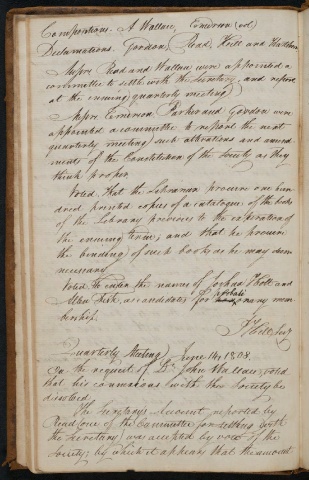 Compositions. A Wallace, Emerson (ed)
Declamations. Gordon, Read, Holt and
Messrs Read and Wallace were appointed a
committee to settle with the Secretary, and report
at the ensuing quarterly meeting.
Messrs Emerson Parker and Gordon were
appointed a committee to report the next
quarterly meeting such alterations and amend
ments of the Constitution of the Society as they
think proper.
Voted, that the Librarian procure one hun
dred printed copies of a catalogue of the books
of the Library previous to the expiration of
the ensuing term; and that he procure
the binding of such books as he may deem
necessary
Voted to enter the names of Joshua Holt and
Allen Fisk, as candidates for probationary mem
bership.
Secy
Quarterly Meeting June 14, 1808.
On the request of Dr John Wallace, voted
that his connexions with this Society be
dissolved.
The Secretary's Account, reported by
Read (one of the Committee for settling with
the Secretary) was accepted by vote of the
Society; by which it appears that the amount